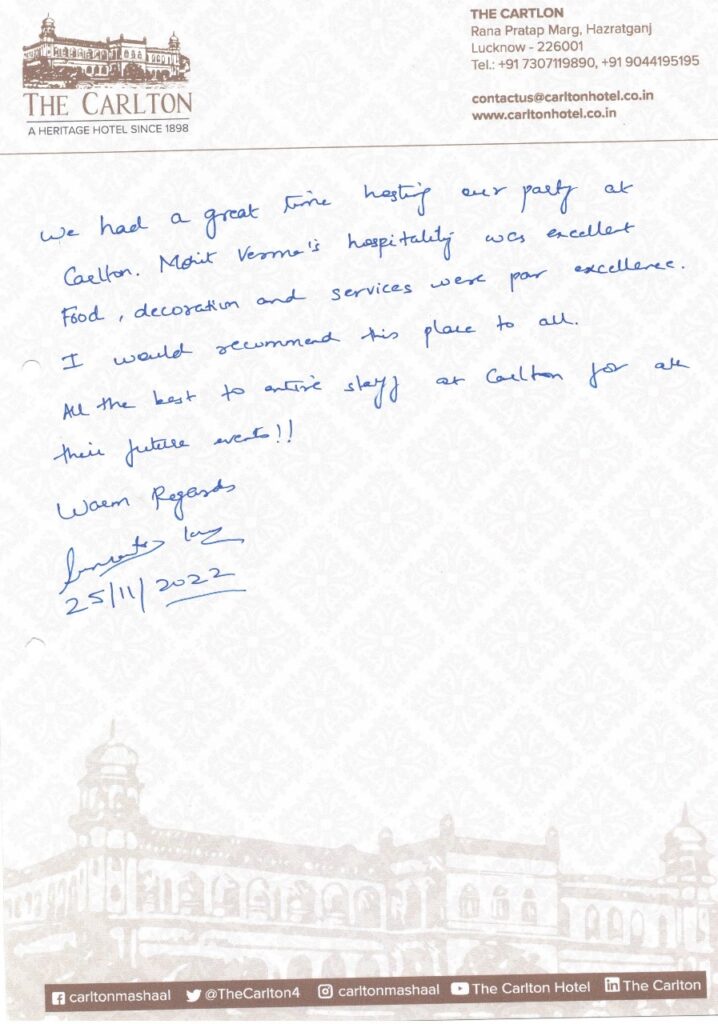 THE CARLTON
A HERITAGE HOTEL SINCE 1898
THE CARTLON
Rana Pratap Marg, Hazratganj
Lucknow - 226001
Tel.: +91 7307119890, +91 9044195195
contactus@carltonhotel.co.in
www.carltonhotel.co.in
We had a great time hosting our party at
Carlton. Mohit Verma's hospitality was excellent
Food, decoration and services were par excellence.
I would recommend this place to all.
All the best to entire staff at Carlton for all
their future events!!
Warm Regards
25/11/2022
carltonmashaal @TheCarlton4 carltonmashaal The Carlton Hotel The Carlton